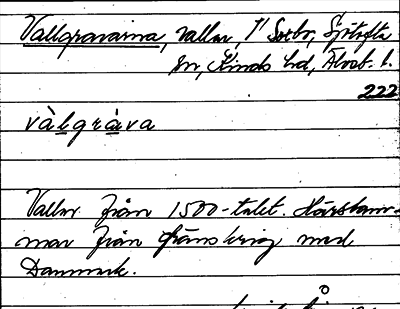 Vallgravarna, vallar, i Sorbo, Sjötofta
sn, Kinds hd, Älvsb. l.
222
vàlgràva
Vallar från 1500-talet. Härstam-
mar från gränskrig med
Danmark.